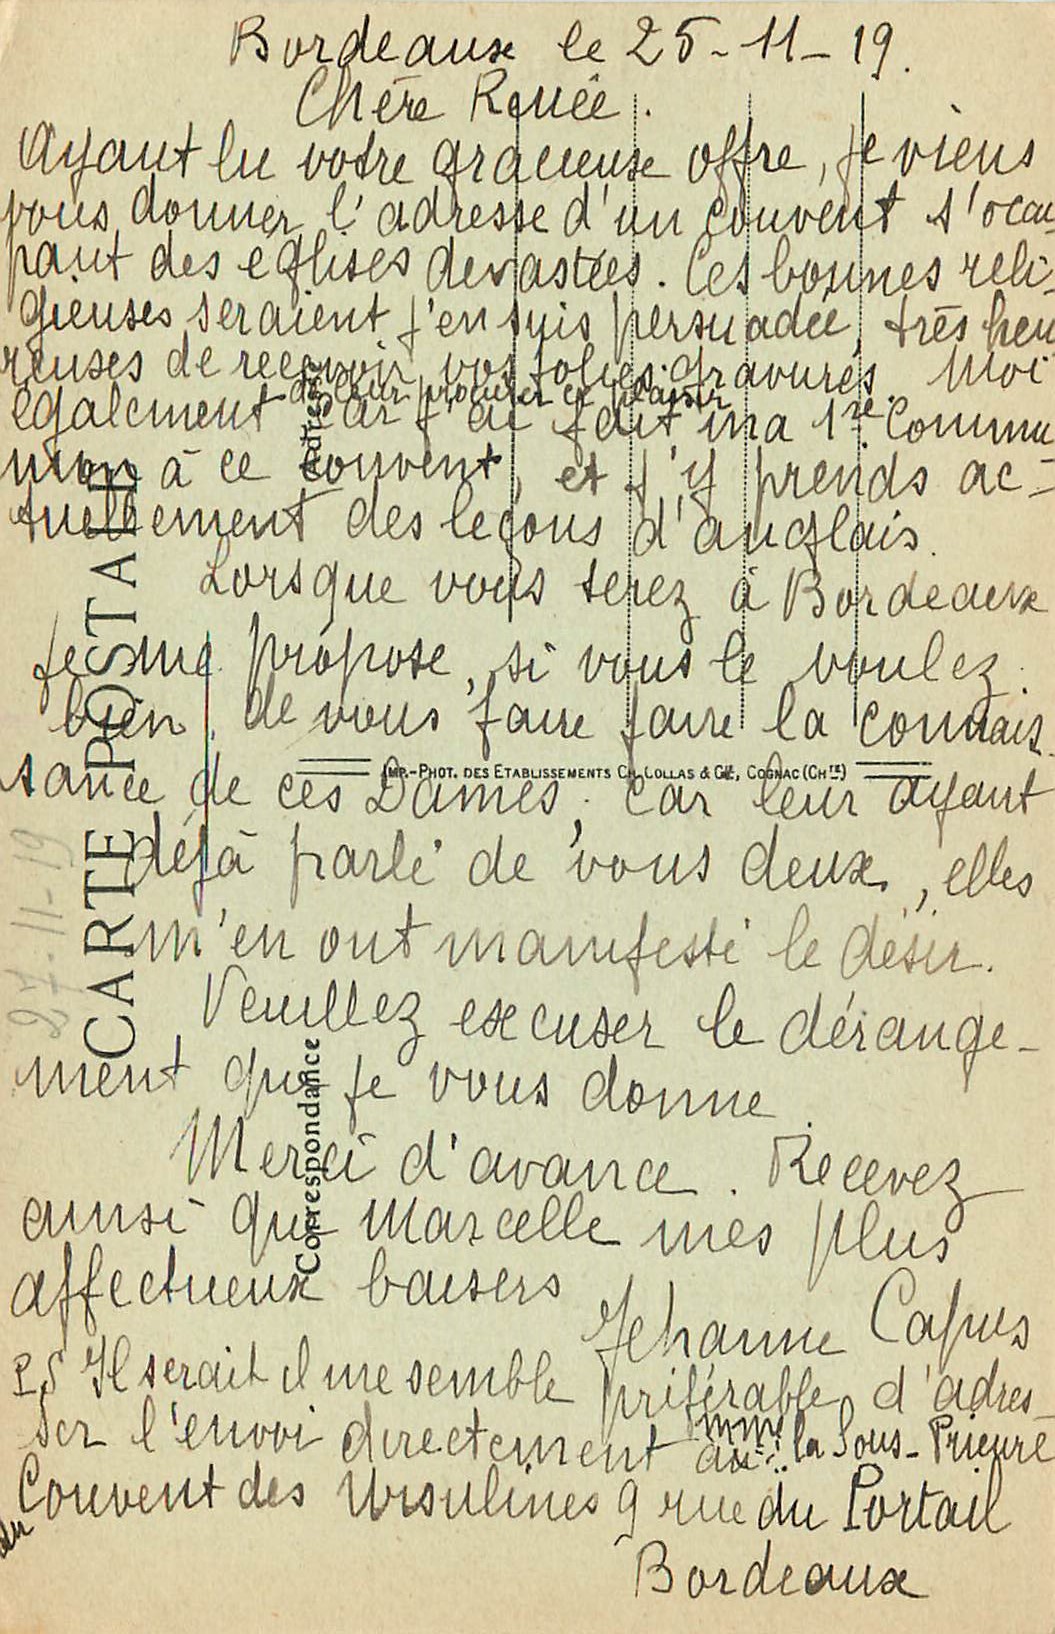 Bordeaux le 25-11-19.
Chère Renée.
Ayant lu votre gracieuse offre, je viens
vous donner l'adresse d'un couvent s'occu-
pant des églises devastées. Ces bonnes reli-
gieuses seraient j'en suis persuadée, très heu
reuses de recevoir vos jolies gravures. Moi
de leur procurer ce plaisir
également car j'ai fait ma 1re Commu
nion à ce couvent, et j'y prends ac-
tuellement des leçons d'anglais.
Lorsque vous serez à Bordeaux
je me propose, si vous le voulez
bien, de vous faire faire la connais-
sance de ces Dames; car leur ayant
déjà parlé de vous deux, elles
m'en ont manifesté le désir.
Veuillez excuser le dérange-
ment que je vous donne.
Merci d'avance. Recevez
ainsi que Marcelle mes plus
affectueux baisers
Jehanne Capus
PS Il serait il me semble préférable d'adres-
ser l'envoi directement à Mme la Sous-Prieure
du Couvent des Ursulines 9 rue du Portail
Bordeaux
CARTE POSTALE
Correspondance
Adresse
IMP.-PHOT. DES ETABLISSEMENTS CH. COLLAS & Cie, COGNAC (CHte)
27-11-19